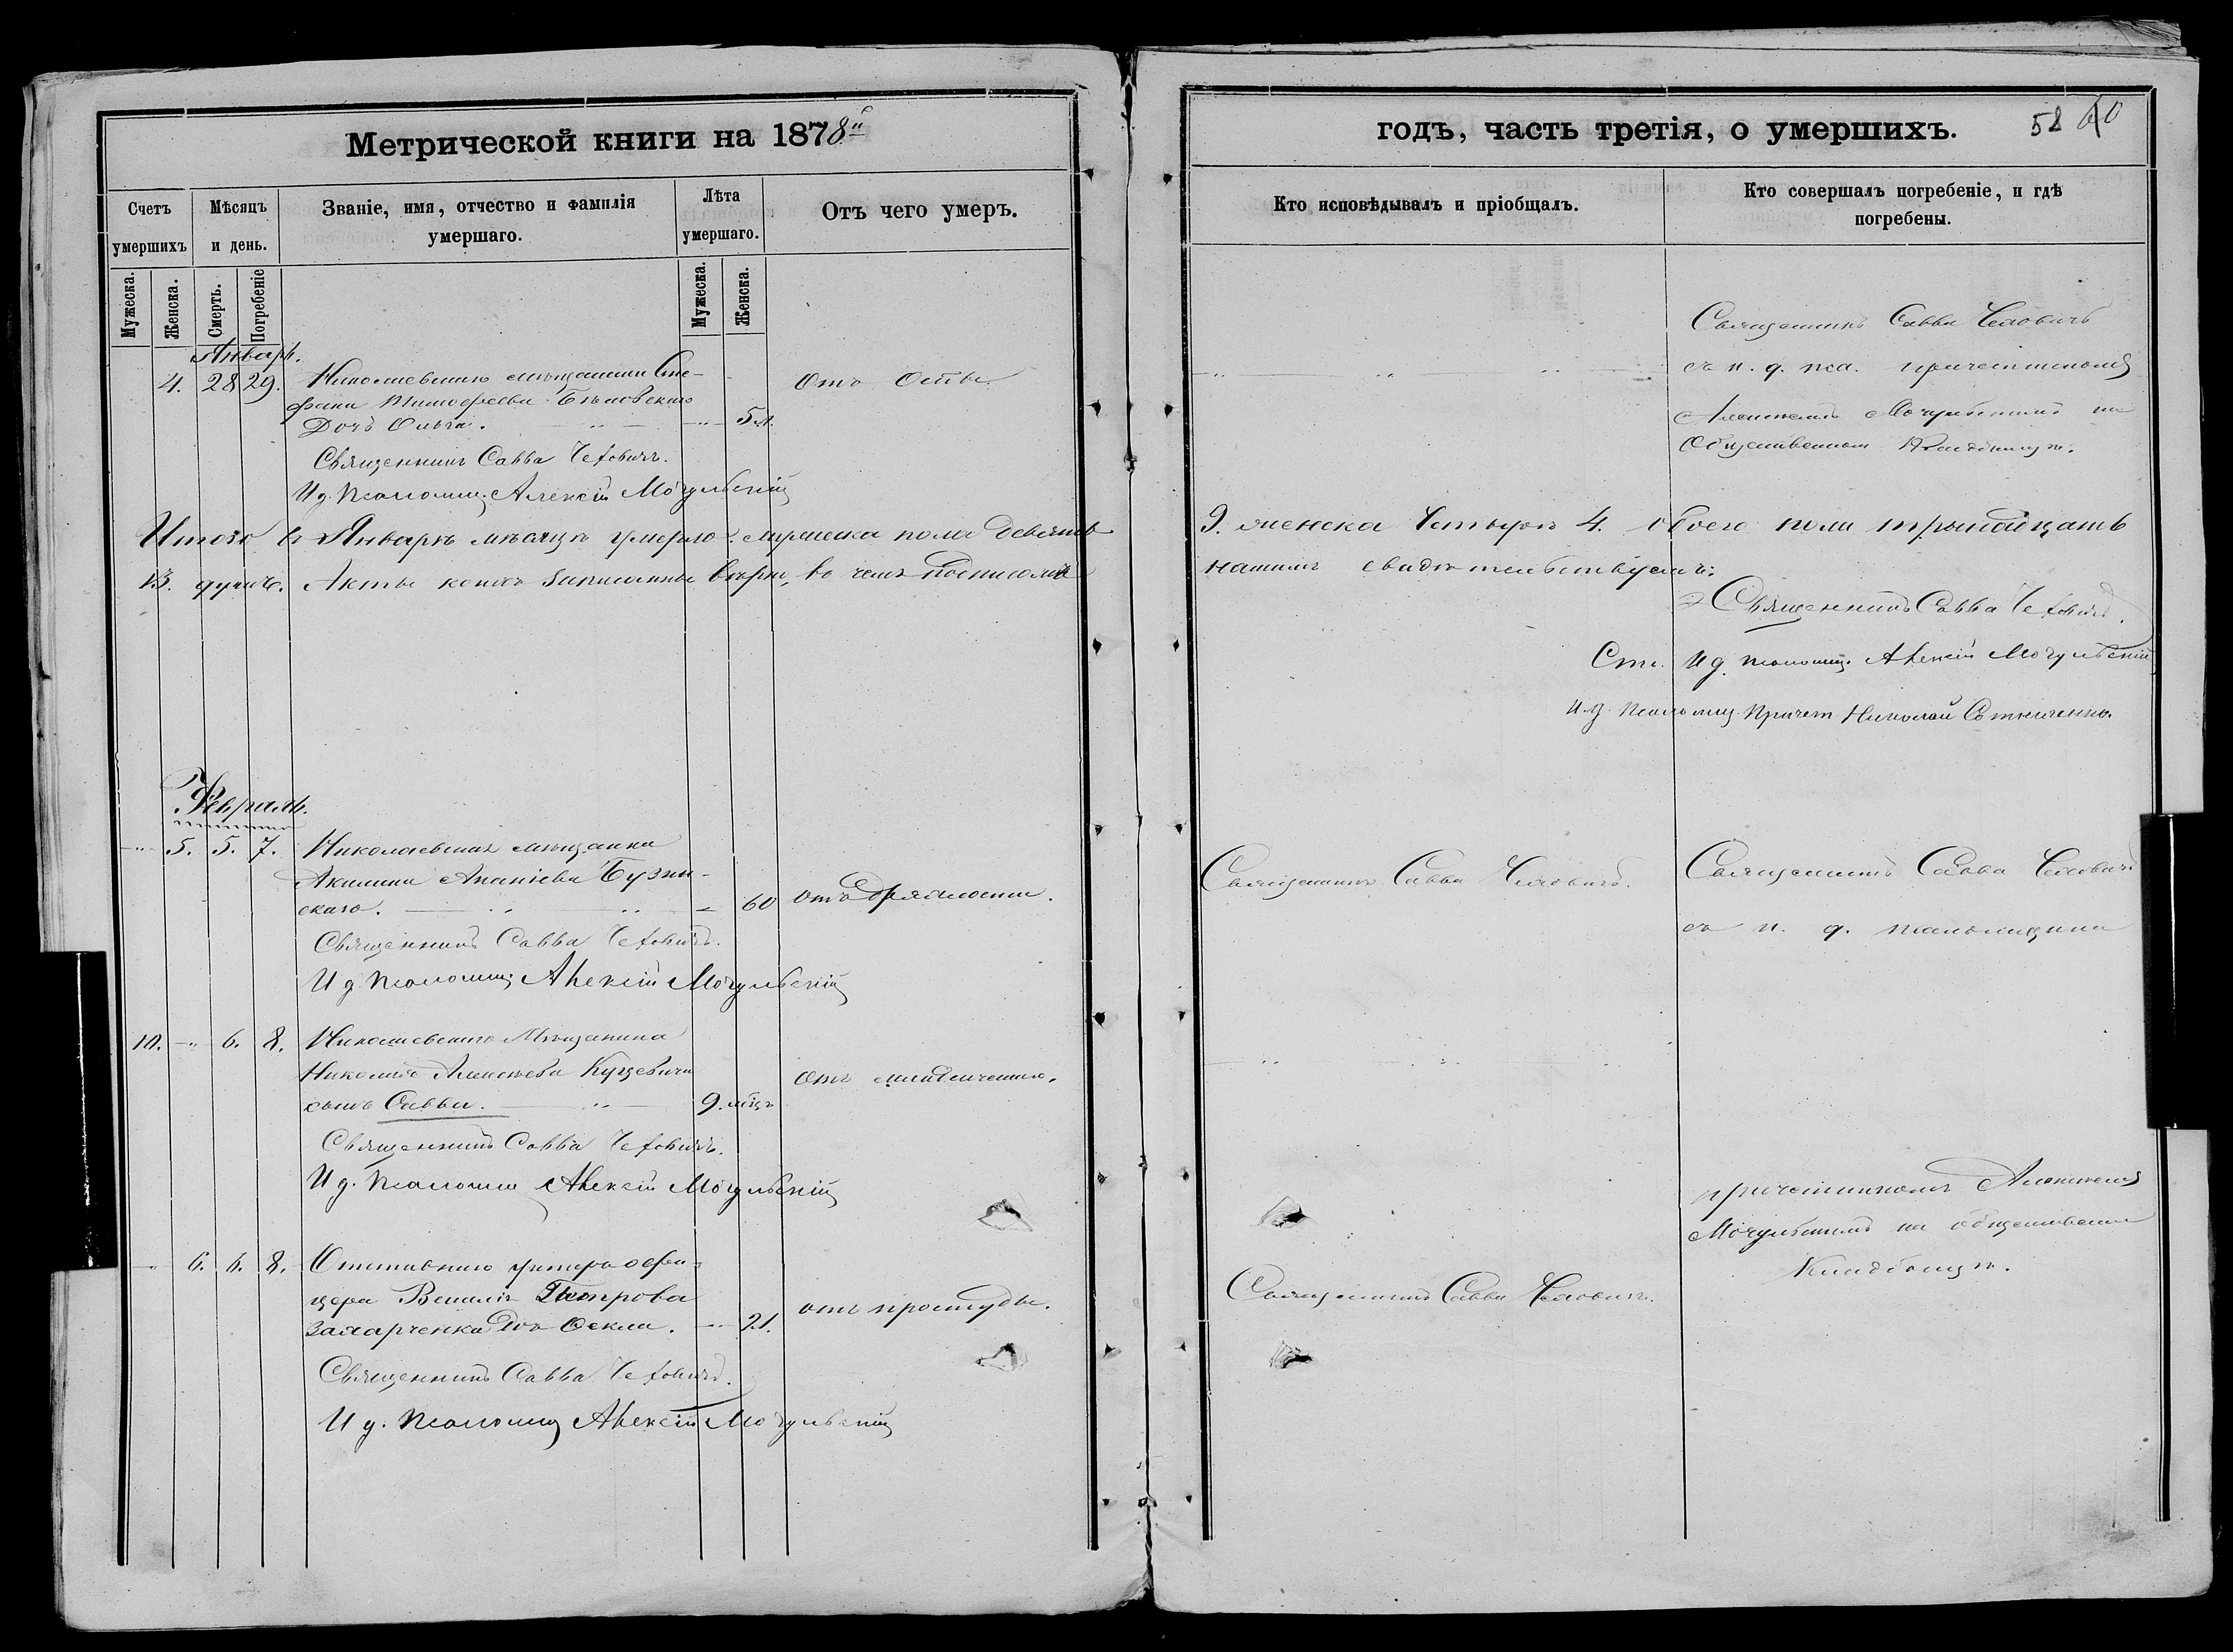 Метрической книги на 1878й
Счетъ умершихъ
Мѣсяцъ и день.
Званіе, имя, отчество и фамилія умершаго.
Лѣта умершаго.
Отъ чего умеръ.
Мужеска.
Женска.
Смерть.
Погребеніе
Мужеска.
Женска.
Январь.
4. 28 29. Николаевскаго мѣщанина Сте-
фана Тимофеева
Дочь Ольга. 5 л.
Отъ Оспы.
Священникъ Савва Чехович.
И д. псаломщ. Алексій Мочульскій
Итого въ Январѣ мѣсяцѣ умерло: мужеска пола девять
13. душъ. Акты коихъ записаны вѣрно, во чемъ подписомъ
Февраль.
5. 5. 7. Николаевская мѣщанка
Акилина Ананіева Бузин-
скаго. 60 отъ дряхлости.
Священникъ Савва Чеховичъ.
И д. псаломщ. Алексій Мочульскій
10. 6. 8. Николаевскаго Мѣщанина
Николая Алексѣева Куцевича
сынъ Савва. 9. мѣц.
Отъ младенческой.
Священникъ Савва Чеховичъ.
И д. псаломщ Алексій Мочульскій
6. 6. 8. Отставнаго унтеръ офи-
цера Василія Петрова
Захарченка Дочь Фекла. 21.
отъ простуды.
Священникъ Савва Чеховичъ.
И д. псаломщ Алексій Мочульскій
годъ, часть третія, о умершихъ.
58 60
Кто исповѣдывалъ и пріобщалъ.
Кто совершалъ погребеніе, и гдѣ погребены.
Священникъ Савва Чеховичъ
съ и. д. пса. причетникомъ
Алексѣемъ Мочульскимъ на
Общественномъ Кладбищѣ.
9. женска четыре 4. обоего пола тринадцать
нашимъ свидѣтельствуемъ:
Священникъ Савва Чеховичъ.
Ст. И д. псаломщ. Алексій Мочульскій
И. д. псаломщ. Причет. Николай
Священникъ Савва Чеховичъ.
Священникъ Савва Чеховичъ
съ и. д. псаломщика
причетникомъ Алексѣемъ
Мочульскимъ на общественном
Кладбищѣ.
Священникъ Савва Чеховичъ.